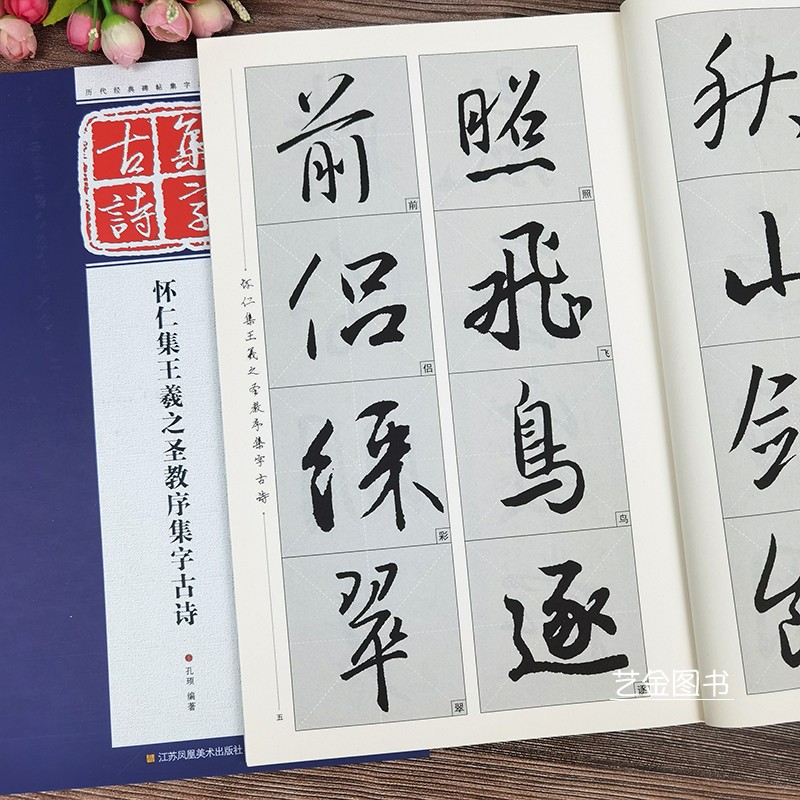 历代经典碑帖集字
集字
古詩
怀仁集王羲之圣教序集字古诗
孔珂 编著
江苏凤凰美术出版社
怀仁集王羲之圣教序集字古诗
五
照飛鳥逐
照
飞
鸟
逐
前侣綵翠
前
侣
彩
翠
秋山
艺金图书